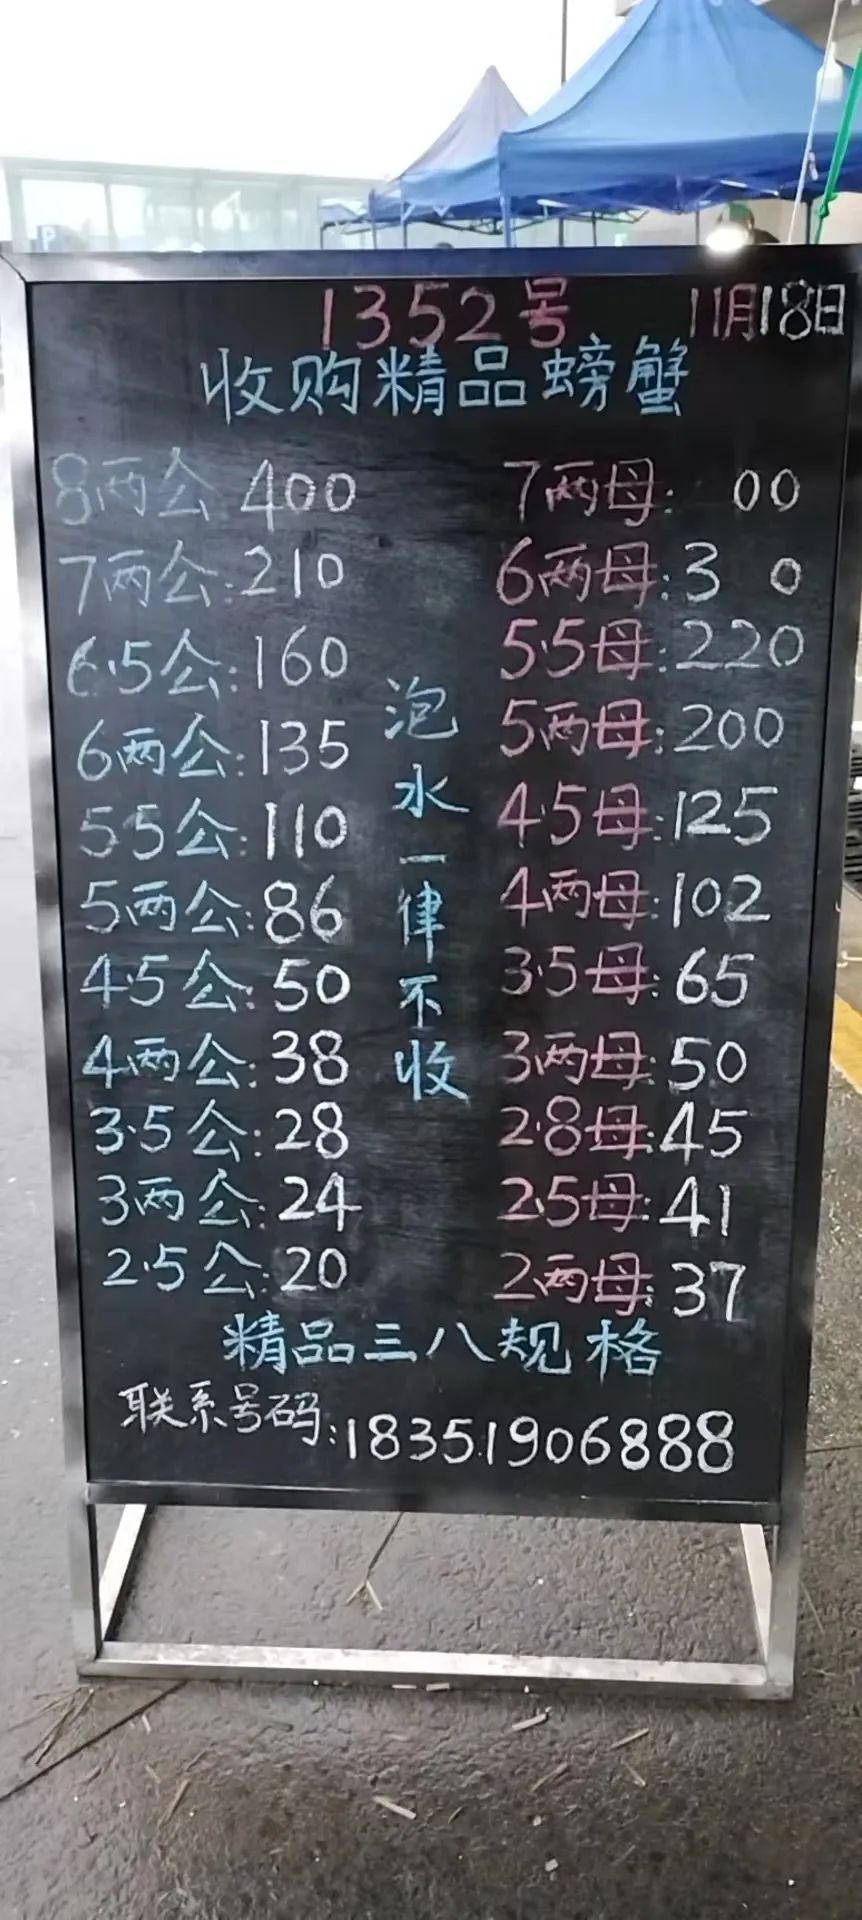 1352号 11月18日
收购精品螃蟹
8两公 400
7两公:210
6.5公:160
6两公:135
55公:110
5两公:86
4.5公:50
4两公:38
3.5公:28
3两公:24
2.5公:20
泡水一律不收
7两母: 00
6两母:3 0
5.5母:220
5两母:200
4.5母:125
4两母:102
3.5母:65
3两母:50
2.8母:45
2.5母:41
2两母:37
精品三八规格
联系号码:18351906888
P